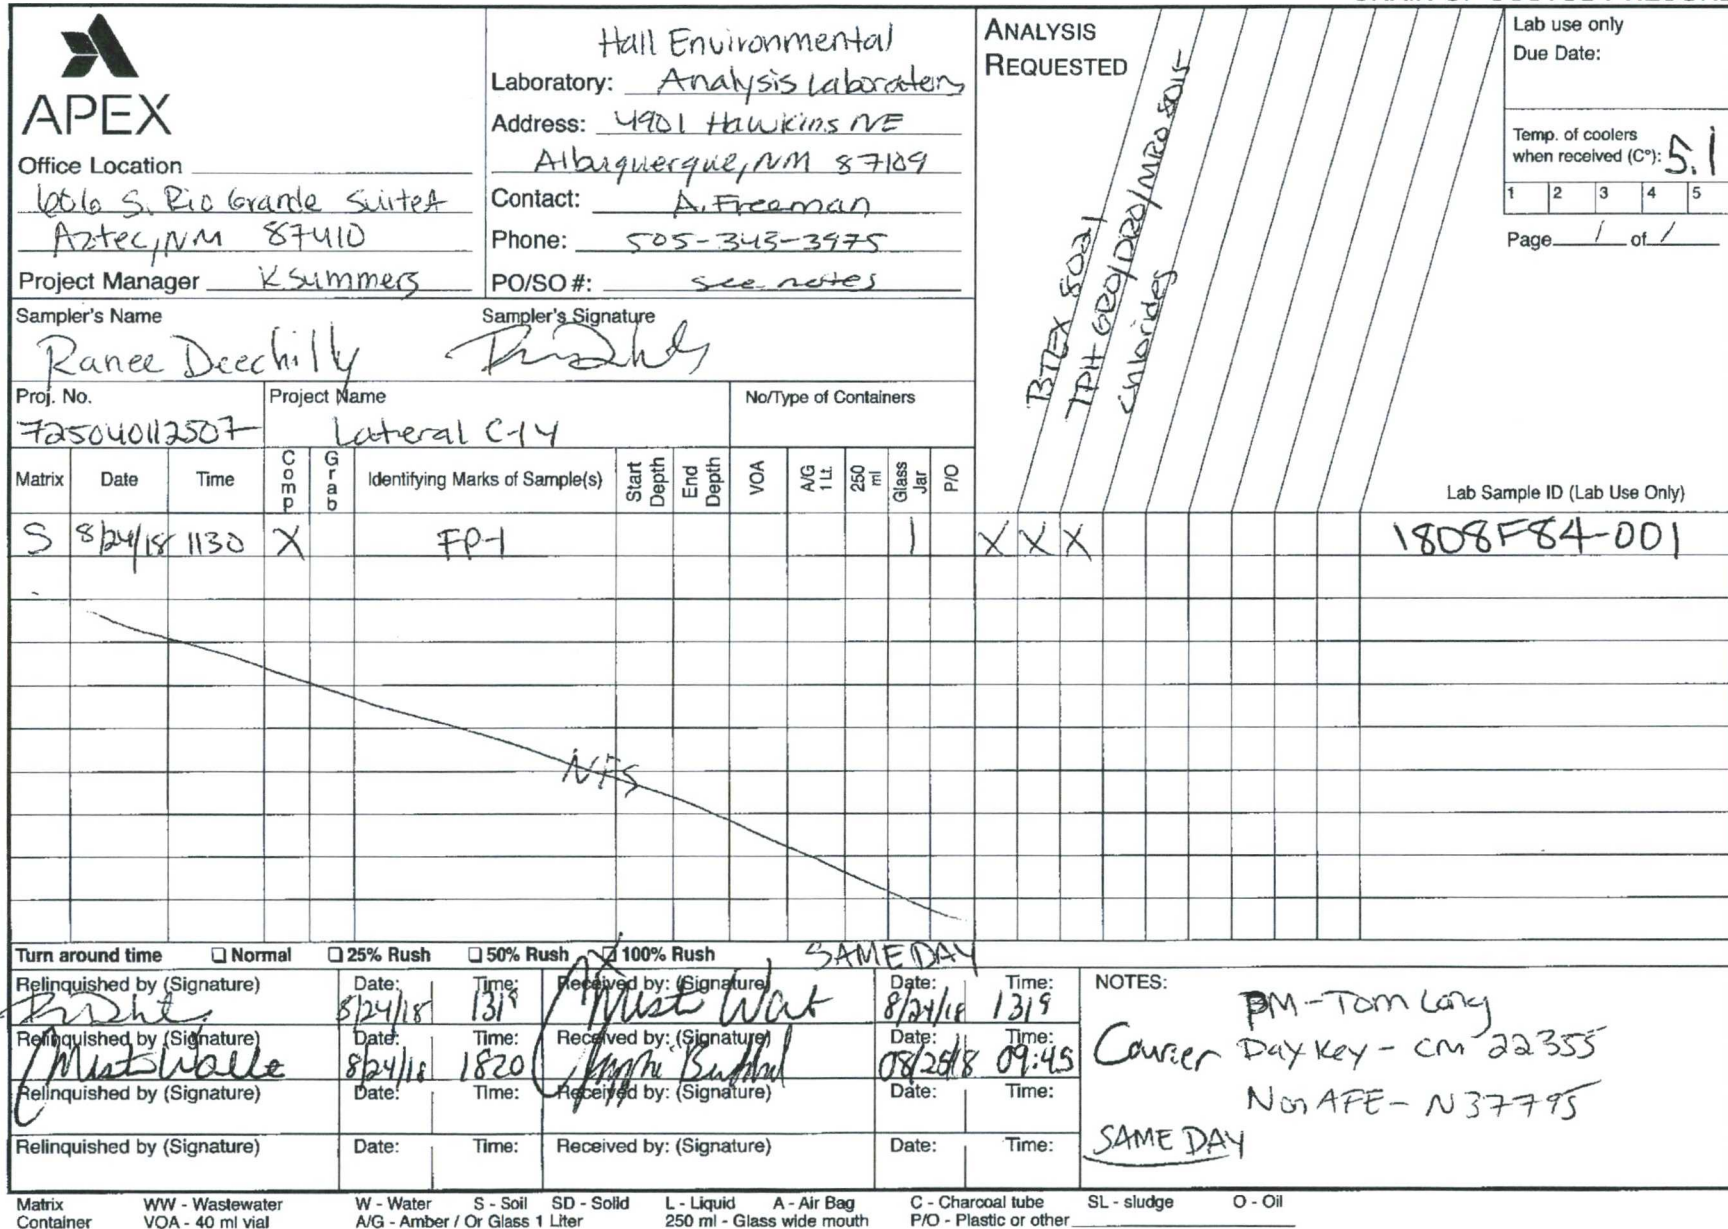 APEX
Office Location
606 S. Rio Grande Suite A
Aztec, NM 87410
Project Manager K Summers
Hall Environmental
Laboratory: Analysis Laboratory
Address: 4901 Hawkins NE
Albuquerque, NM 87109
Contact: A. Freeman
Phone: 505-345-3975
PO/SO #: see notes
ANALYSIS
REQUESTED
BTEX 8021
TPH GRO/DRO/MRO 8015
Chlorides
Lab use only
Due Date:
Temp. of coolers
when received (C°): 5.1
1 2 3 4 5
Page 1 of 1
Sampler's Name
Ranee Deechilly
Sampler's Signature
Proj. No.
725040112507
Project Name
Lateral C-14
No/Type of Containers
Matrix Date Time Comp Grab Identifying Marks of Sample(s) Start Depth End Depth VOA A/G 1 Lt. 250 ml Glass Jar P/O Lab Sample ID (Lab Use Only)
S 8/24/18 1130 X FP-1 1 X X X 1808F84-001
NFS
Turn around time Normal 25% Rush 50% Rush 100% Rush SAME DAY
Relinquished by (Signature) Date: 8/24/18 Time: 1319 Received by: (Signature) Date: 8/24/18 Time: 1319
Relinquished by (Signature) Date: 8/24/18 Time: 1820 Received by: (Signature) Date: 08/25/18 Time: 09:45
Relinquished by (Signature) Date: Time: Received by: (Signature) Date: Time:
Relinquished by (Signature) Date: Time: Received by: (Signature) Date: Time:
NOTES:
PM - Tom Long
Courier Day Key - CM 22355
Non AFE - N37795
SAME DAY
Matrix WW - Wastewater W - Water S - Soil SD - Solid L - Liquid A - Air Bag C - Charcoal tube SL - sludge O - Oil
Container VOA - 40 ml vial A/G - Amber / Or Glass 1 Liter 250 ml - Glass wide mouth P/O - Plastic or other